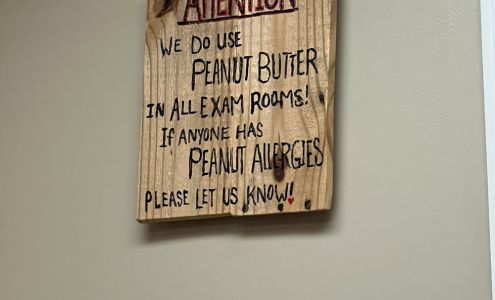 ATTENTION
WE DO USE
PEANUT BUTTER
IN ALL EXAM ROOMS!
IF ANYONE HAS
PEANUT ALLERGIES
PLEASE LET US KNOW!